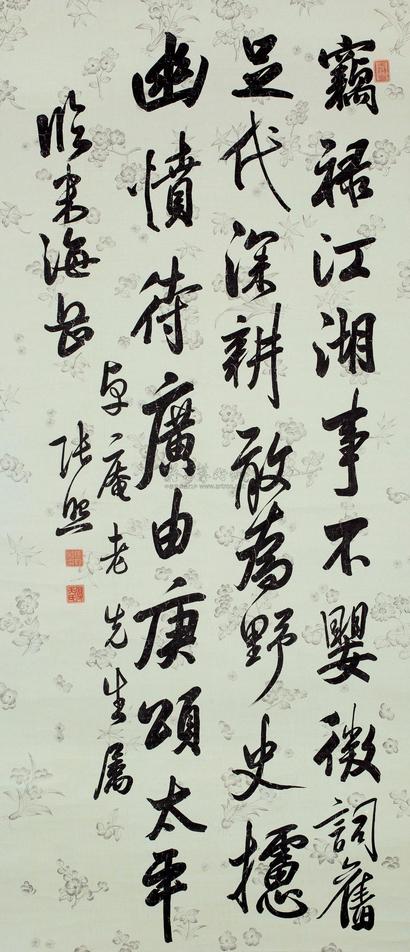 竊祿江湖事不嬰微詞舊
足代深耕敢爲野史攄
幽憤待廣由庚頌太平
卓庵老先生屬
臨米海岳
張照